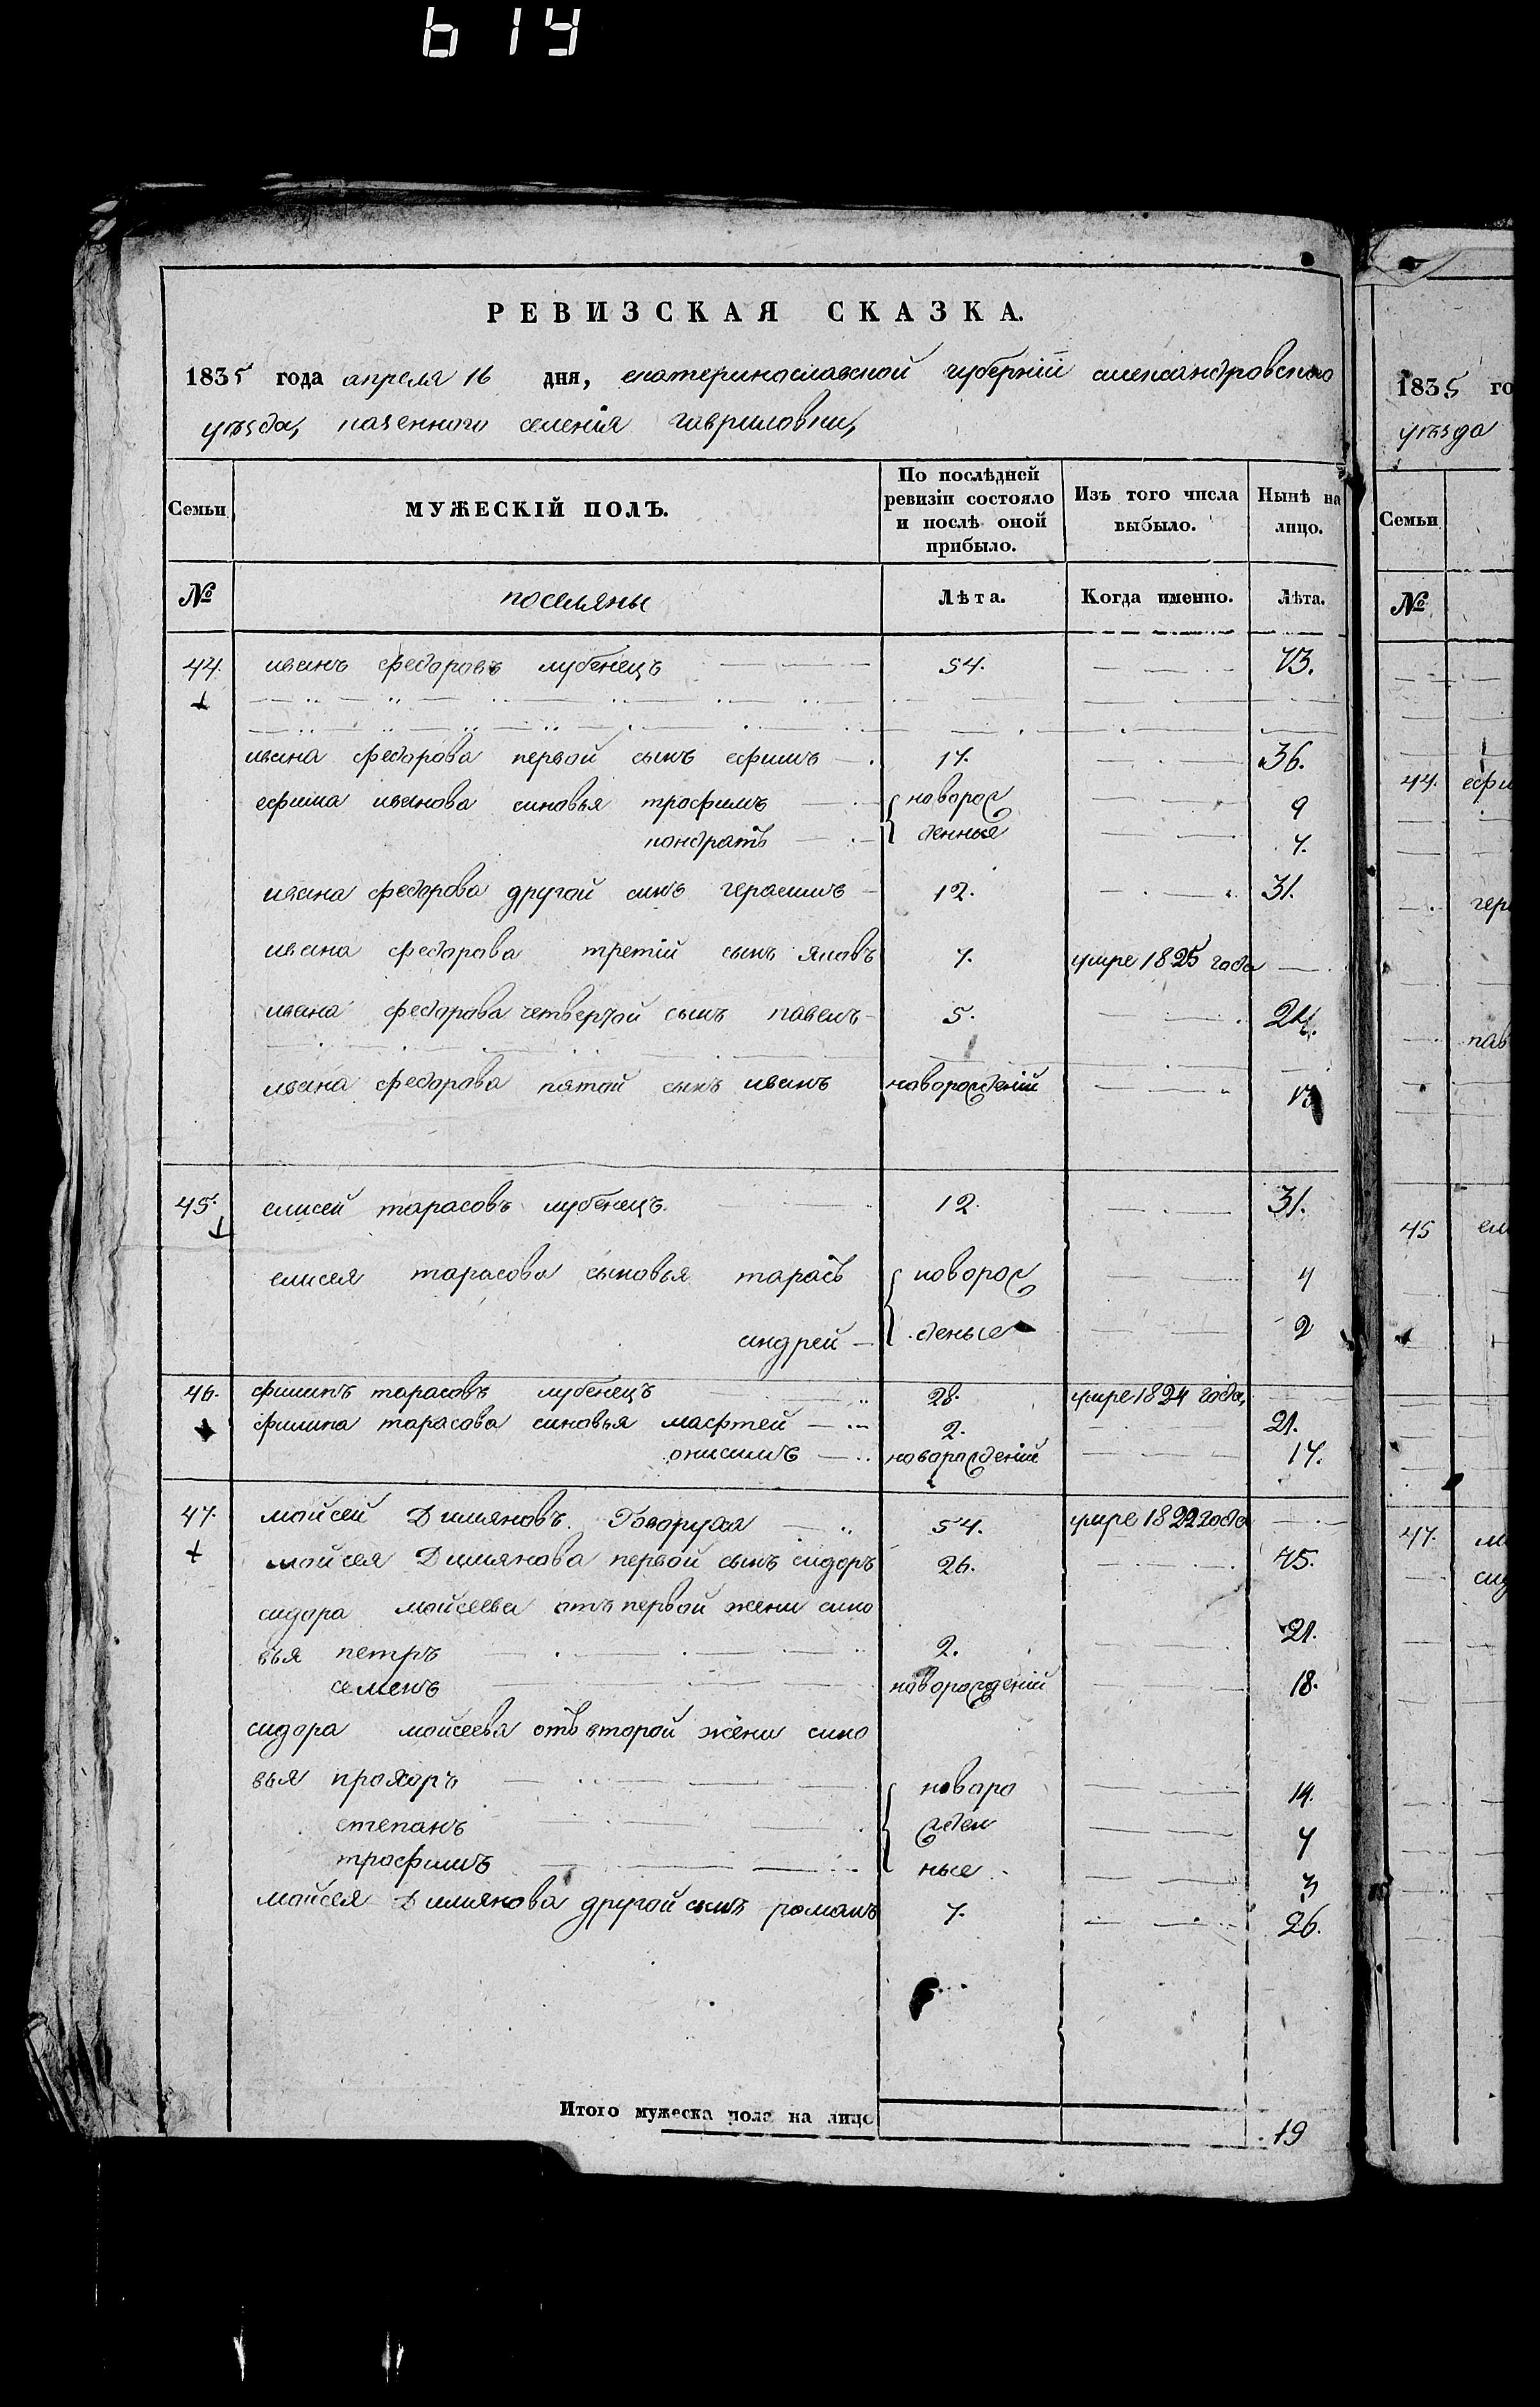 614
РЕВИЗСКАЯ СКАЗКА.
1835 года апреля 16 дня, екатеринославской губернїй александровского
уѣзда, казенного селенія гавриловки,
Семьи
МУЖЕСКІЙ ПОЛЪ.
По послѣдней ревизіи состояло и послѣ оной прибыло.
Изъ того числа выбыло.
Нынѣ на лицо.
№ поселяны Лѣта. Когда именно. Лѣта.
44. иванъ федоровъ лубенецъ 54. 73.
ивана федорова первой сынъ ефимъ 17. 36.
ефима иванова синовья трофимъ новорож 9
кондратъ денныя 7.
ивана федорова другой синъ герасимъ 12. 31.
ивана федорова третій сынъ яковъ 7. умре 1825 года
ивана федорова четвертой сынъ павелъ 5. 24.
ивана федорова пятой сынъ иванъ новорожденій 13
45. елисей тарасовъ лубенецъ. 12. 31.
елисея тарасова сыновья тарасъ новорож 4
андрей деные 2
46. филипъ тарасовъ лубенецъ 28. умре 1824 года,
филипа тарасова синовья мафтей 2. 21.
онисимъ новорожденій 17.
47. мойсей Димяновъ. Говоруха 54. умре 1822 года
мойсея Димянова первой сынъ сидоръ 26. 45.
сидора мойсеева отъ первой жени сино
вья петръ 2. 21.
семенъ новорожденій 18.
сидора мойсеева отъ второй жени сино
вья прохоръ новоро 14.
степанъ жден 7
трофимъ ные 3
мойсея Димянова другой синъ романъ 7. 26.
Итого мужеска пола на лицо 19
1835 го
уѣзда
Семьи
№
44. ефи
гера
пав
45 ели
47. м
сид